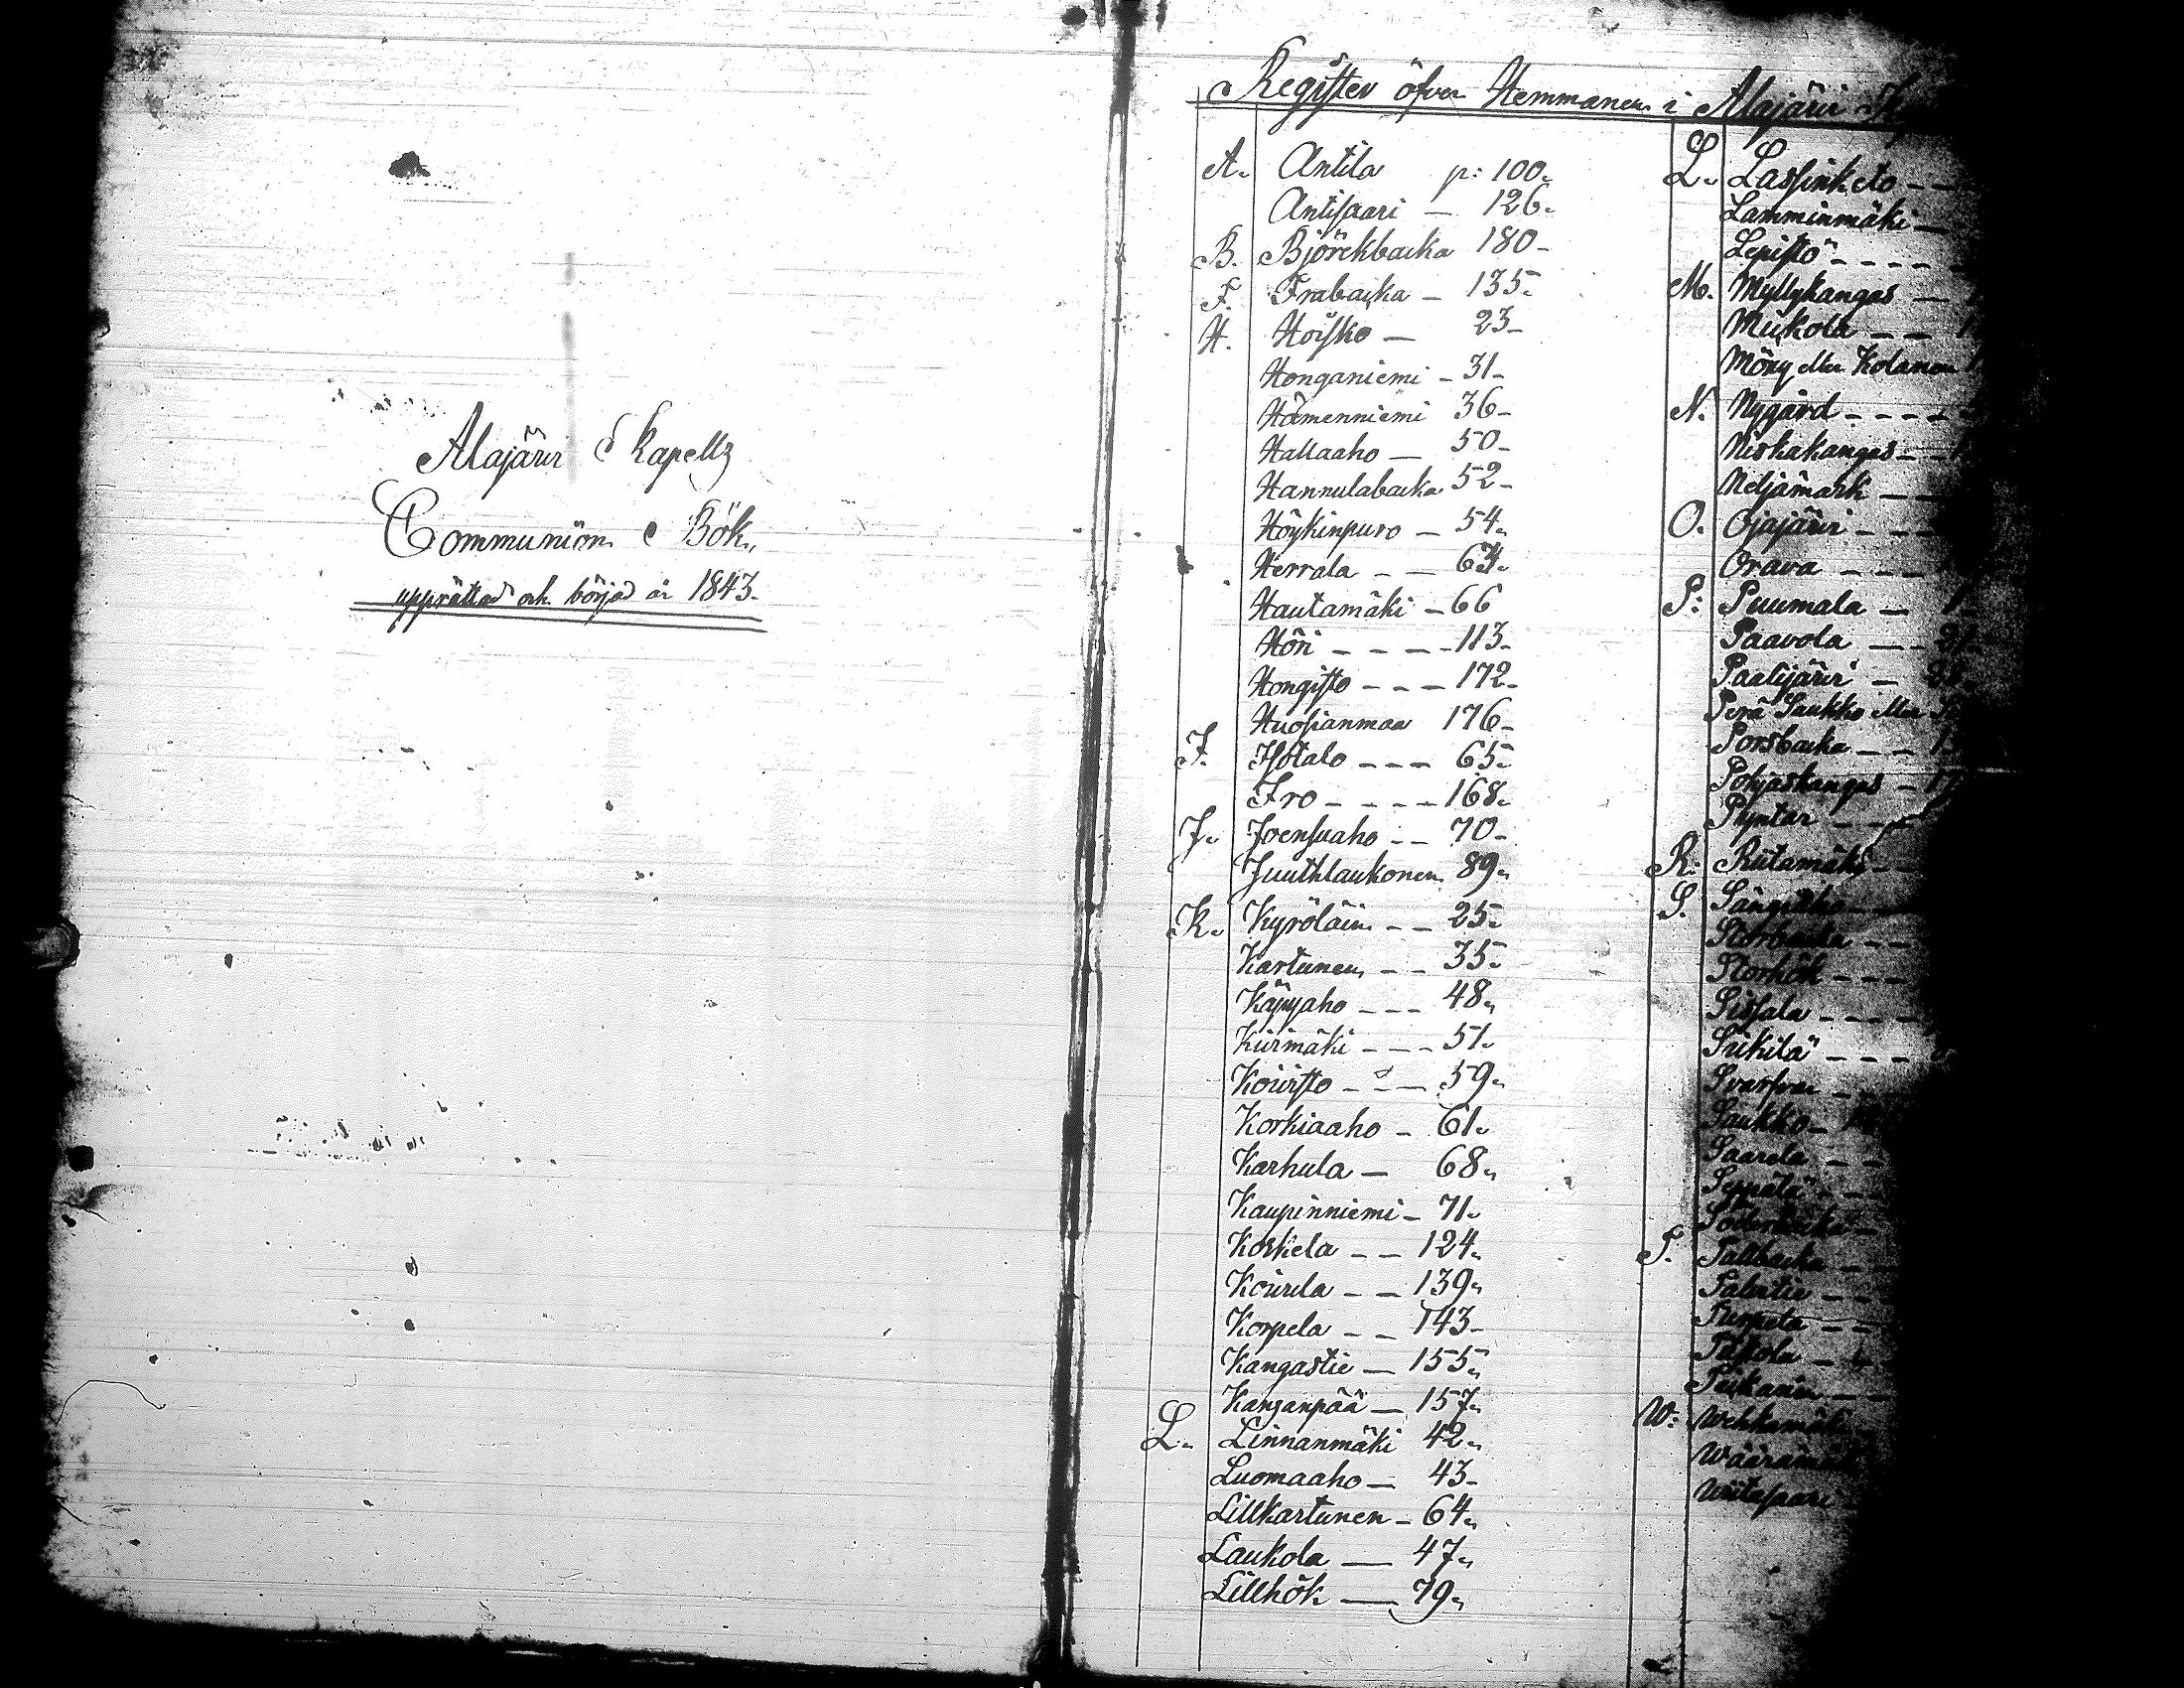 Alajärvi Kapells
Communion Bok,
upprättad och börjad år 1843.
Register öfver Hemmanen i Alajärvi
A. Antila p: 100.
Antisaari — 126.
B. Björckbacka 180-
F. Frabacka — 135.
H. Hoisko — 23-
Honganiemi - 31-
Hämenniemi 36-
Hallaaho — 50-
Hannulabacka 52-
Höykinpuro — 54.
Herrala - — 67.
Hautamäki - 66
Höri - - - - 113-
Hongisto - - - 172-
Huosianmaa 176-
I. Isotalo - - - 65.
Iro - - - - 168.
J. Joensuaho - - 70-
Juuthlaukonen 89.
K. Kyröläin - - 25.
Kartunen - - 35.
Käpyaho - - - 48.
Kiirmäki - - - 51.
Koivisto - - — 59.
Korkiaaho - 61.
Karhula — 68.
Kaupinniemi - 71.
Koskela - - 124.
Koirula - - 139.
Korpela - - 143-
Kangastie — 155.
Kanganpää — 157.
L. Linnanmäki 42.
Luomaaho — 43-
Lillkartunen - 64.
Laukola — 47.
Lillhök — 79.
L. Lassinketo - -
Lamminmäki —
Lepistö - - - -
M. Myllykangas —
Miikola - -
Möny eller Kolanen
N. Nygård - - - -
Niskakangas -
Neljämark —
O. Ojajärvi - -
Orava - - -
P: Puumala —
Paavola - -
Paalijärvi —
Perä Saukko eller
Porsbacka - -
Pohjaskangas -
Pyntär - -
R: Riitamäki - -
S. Sängilho
Storbacka - -
Storhök - - -
Sissala - - - -
Siikilä - - - -
Svarfvar -
Saukko -
Saarela - -
Seppälä - -
Söderbacka -
T. Tallbacka - -
Talvitie - - -
Tierpeta - -
Tiikanin - -
W: Wehkamäki
Wääränmäki
Wiitasaari